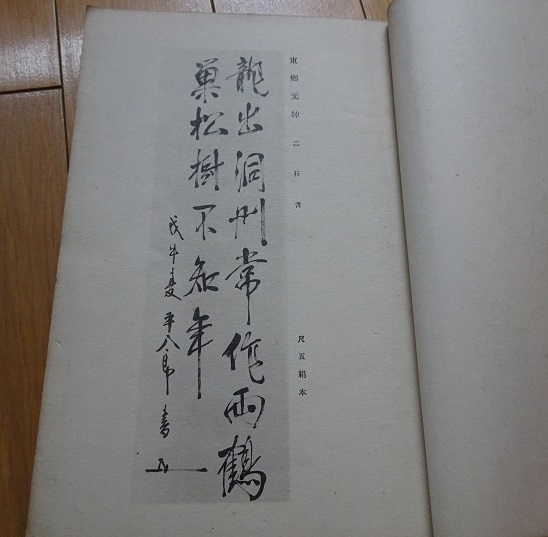 東鄕元帥 二行書
尺五絹本
龍出洞門常作雨鶴
巣松樹不知年
戊午夏 平八郎書